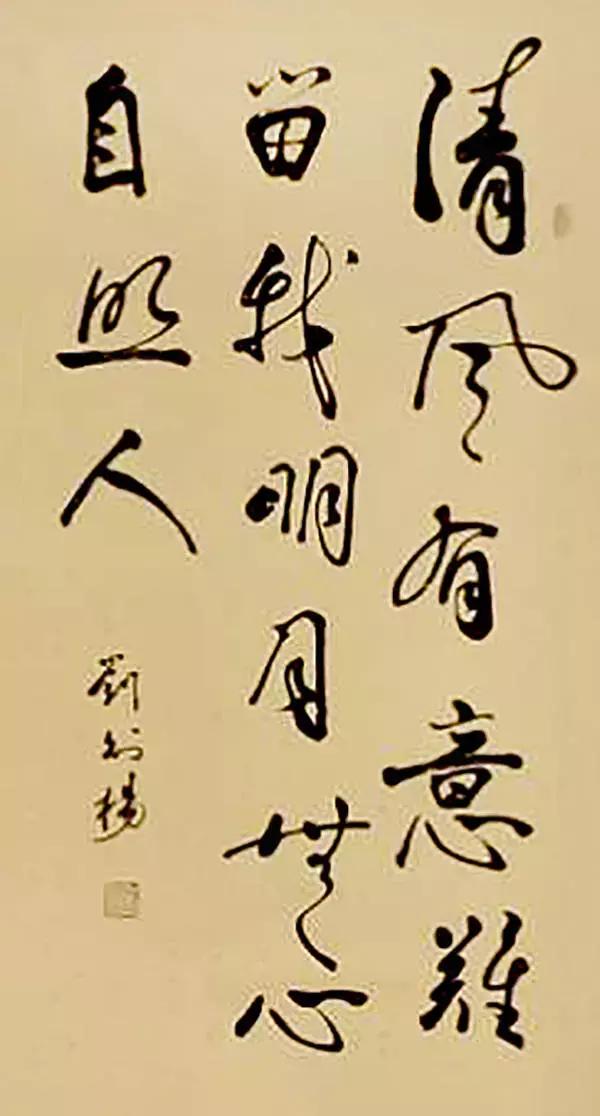 清风有意難
留我明月無心
自照人
劉利楊